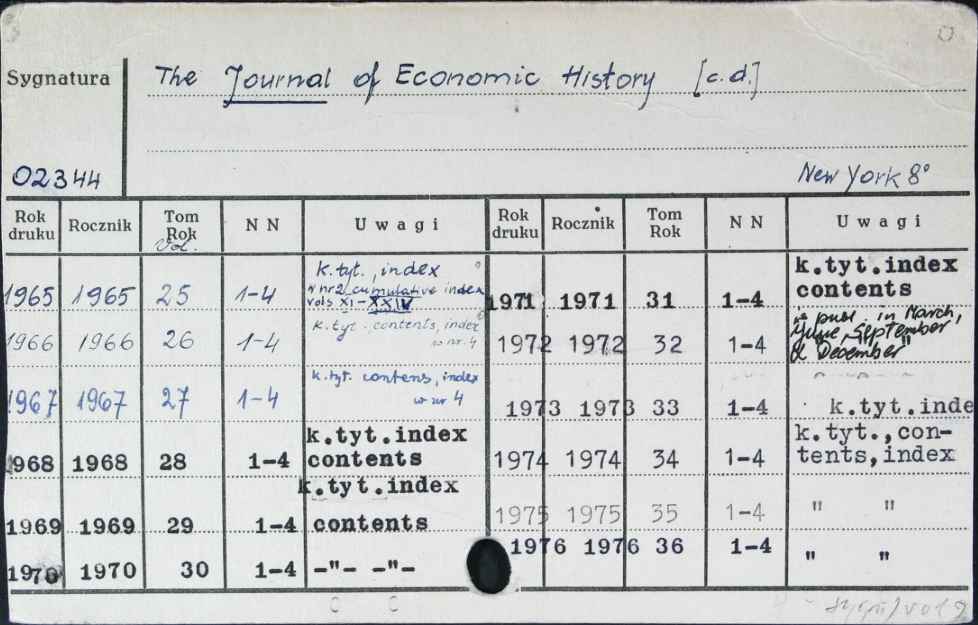 Sygnatura
The Journal of Economic History [c.d.]
02344
New York 8°
Rok druku Rocznik Tom Rok Vol. N N Uwagi
1965 1965 25 1-4 k.tyt., index
w nr 2 cumulative index
vols XI-XXIV
1966 1966 26 1-4 k.tyt. contents, index
w nr. 4
1967 1967 27 1-4 k.tyt. contens, index
w nr 4
1968 1968 28 1-4 k.tyt.index
contents
1969 1969 29 1-4 k.tyt.index
contents
1970 1970 30 1-4 -"- -"-
Rok druku Rocznik Tom Rok N N Uwagi
1971 1971 31 1-4 k.tyt.index
contents
publ. in March,
June, September
& December"
1972 1972 32 1-4
1973 1973 33 1-4 k.tyt.inde
1974 1974 34 1-4 k.tyt.,con-
tents,index
1975 1975 35 1-4 " "
1976 1976 36 1-4 " "